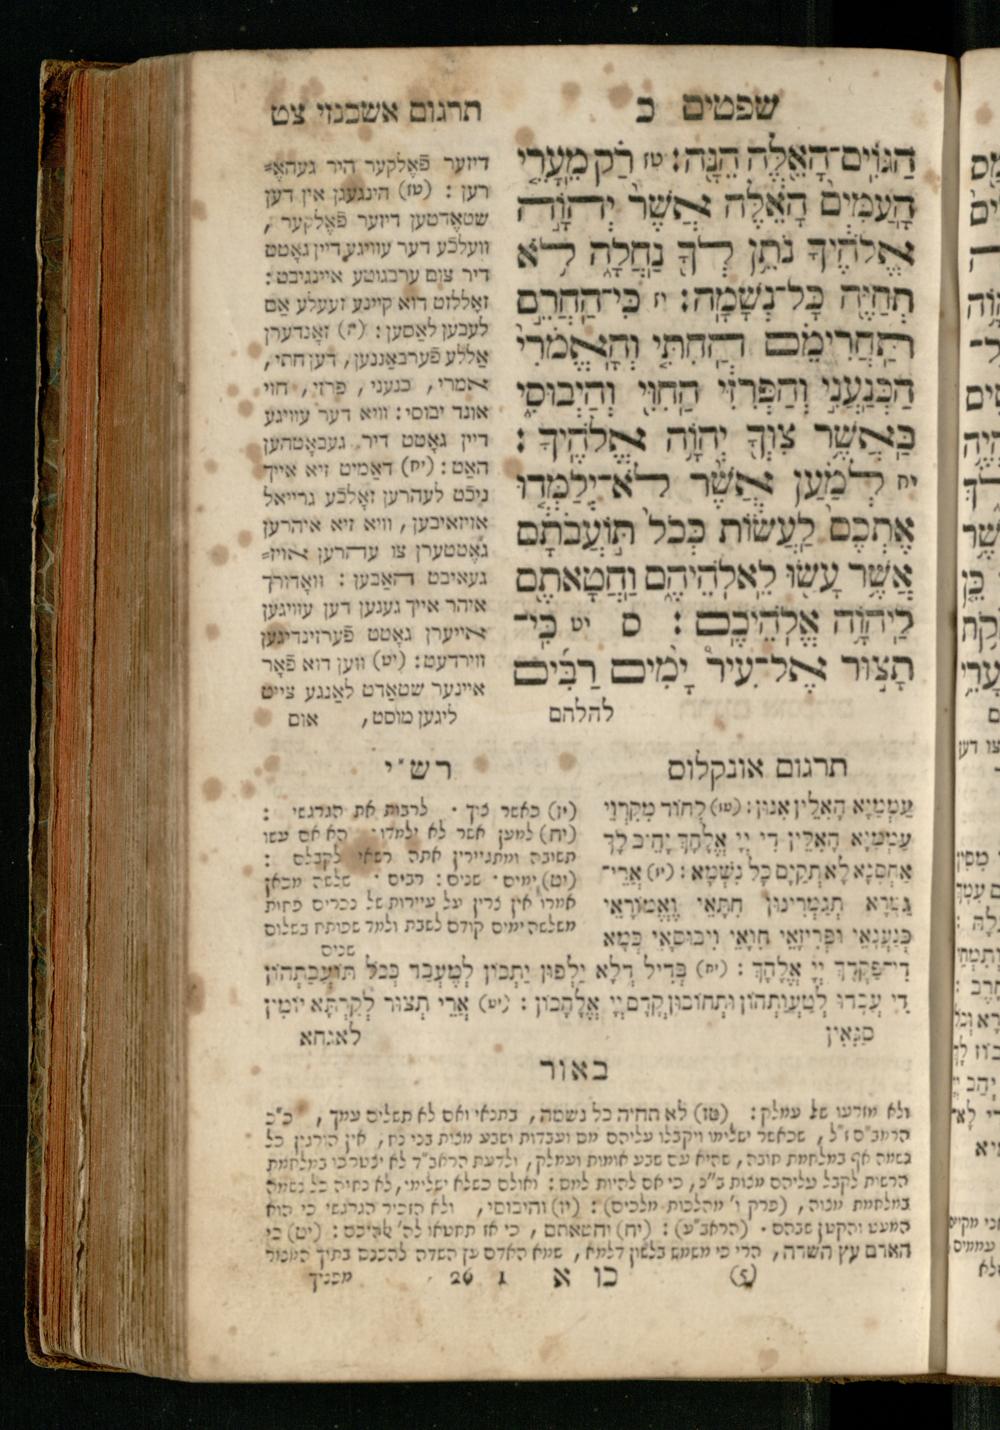 שפטים כ
תרגום אשכנזי צט
הַגּוֹיִֽם־הָאֵ֖לֶּה הֵֽנָּה: טז רַ֗ק מֵֽעָרֵ֤י
הָֽעַמִּים֙ הָאֵ֔לֶּה אֲשֶׁר֙ יְהוָ֣ה
אֱלֹהֶ֔יךָ נֹתֵ֥ן לְךָ֖ נַחֲלָ֑ה לֹ֥א
תְחַיֶּ֖ה כָּל־נְשָׁמָֽה: יז כִּֽי־הַחֲרֵ֣ם
תַּחֲרִימֵ֗ם הַחִתִּ֤י וְהָאֱמֹרִי֙
הַכְּנַעֲנִ֣י וְהַפְּרִזִּ֔י הַחִוִּ֖י וְהַיְבוּסִ֑י
כַּאֲשֶׁ֥ר צִוְּךָ֖ יְהוָ֥ה אֱלֹהֶֽיךָ:
יח לְמַ֗עַן אֲשֶׁ֨ר לֹֽא־יְלַמְּד֤וּ
אֶתְכֶם֙ לַעֲשׂוֹת֙ כְּכֹל֙ תּוֹעֲבֹתָ֔ם
אֲשֶׁ֥ר עָשׂ֖וּ לֵֽאלֹהֵיהֶ֑ם וַחֲטָאתֶ֖ם
לַֽיהוָ֥ה אֱלֹהֵיכֶֽם: ס יט כִּֽי־
תָצ֣וּר אֶל־עִיר֩ יָמִ֨ים רַבִּ֜ים
להלחם
דיזער פֿאָלקער היר געהאָ=
רען: (טז) הינגעגן אין דען
שטאָדטען דיזער פֿאָלקער,
וועלכֿע דער עוויגע דיין גאָטט
דיר צום ערבגוטע איינגיבט:
זאָללזט דוא קיינע זעעלע אַם
לעבען לאַסען: (יז) זאָנדערן
אַללע פֿערבאַננען, דען חתי,
אמרי, כנעני, פרזי, חוי
אונד יבוסי: וויא דער עוויגע
דיין גאָטט דיר געבאָטהען
האַט: (יח) דאַמיט זיא אייך
ניכֿט לעהרען זאָלכֿע גרייאל
אויזאיבען, וויא זיא איהרען
גאָטטערן צו עהרען אויז=
געאיבט האַבען: וואָדורך
איהר אייך געגען דען עוויגען
אייערן גאָטט פֿערזינדיגען
ווירדעט: (יט) ווען דוא פֿאָר
איינער שטאַדט לאַנגע צייט
ליגען מוסט, אום
תרגום אונקלוס
עַמְמַיָּא הָאִלֵּין אִנּוּן: (טז) לְחוֹד מִקִּרְוֵי
עַמְמַיָּא הָאִלֵּין דִּי יְיָ אֱלָהָךְ יָהֵיב לָךְ
אַחְסָנָא לָא תְקַיֵּם כָּל נִשְׁמָא: (יז) אֲרֵי־
גַמָּרָא תְגַמְּרִינּוּן חִתָּאֵי וֶאֱמוֹרָאֵי
כְּנַעֲנָאֵי וּפְרִיזָאֵי חִוָּאֵי וִיבוּסָאֵי כְּמָא
דִּי־פַקְּדָךְ יְיָ אֱלָהָךְ: (יח) בְּדִיל דְּלָא יַלְּפוּן יַתְכוֹן לְמֶעְבַּד כְּכֹל תּוֹעֲבָתְהוֹן
דִּי עֲבָדוּ לְטַעֲוָתְהוֹן וּתְחוּבוּן קֳדָם יְיָ אֱלָהֲכוֹן: (יט) אֲרֵי תְצוּר לְקַרְתָּא יוֹמִין
סַגִּיאִין לאגחא
רש״י
(יז) כאשר צוך · לרבות את הגרגשי:
(יח) למען אשר לא ילמדו · הא אם עשו
תשובה ומתגיירין אתה רשאי לקבלם:
(יט) ימים · שנים: רבים · שלשה מכאן
אמרו אין צרין על עיירות של נכרים פחות
משלשה ימים קודם לשבת ולמד שפותח בשלום
שנים
באור
ולא מזרעו של עמלק: (טז) לא תחיה כל נשמה, בתנאי ואם לא תשלים עמך, כ״כ
הרמב״ם ז״ל, שכאשר ישלימו ויקבלו עליהם מס ועבדות ושבע מצות בני נח, אין הורגין כל
נשמה אף במלחמת חובה, שהיא עם שבע אומות ועמלק, ולדעת הראב״ד לא יצטרכו במלחמת
הרשות לקבל עליהם מצות ב״נ, כי אם להיות למס: ואולם כשלא ישלימו, לא נחיה כל נשמה
במלחמת מצוה, (פרק ו׳ מהלכות מלכים): (יז) והיבוסי, ולא הזכיר הגרגשי כי הוא
המעט והקטן שבהם · (הראב״ע): (יח) וחטאתם, כי אז תחטאו לה׳ אלהיכם: (יט) כי
האדם עץ השדה, הרי כי משמש בלשון דלמא, שמא האדם עץ השדה להכנס בתוך המצור
(5) כו א 1 26 מפניך